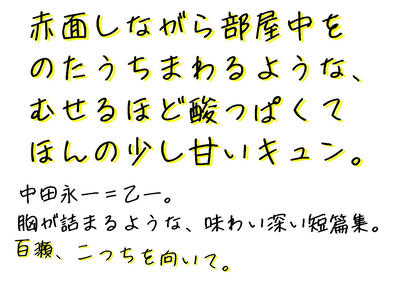 赤面しながら部屋中を
のたうちまわるような、
むせるほど酸っぱくて
ほんの少し甘いキュン。
中田永一＝乙一。
胸が詰まるような、味わい深い短篇集。
百瀬、こっちを向いて。